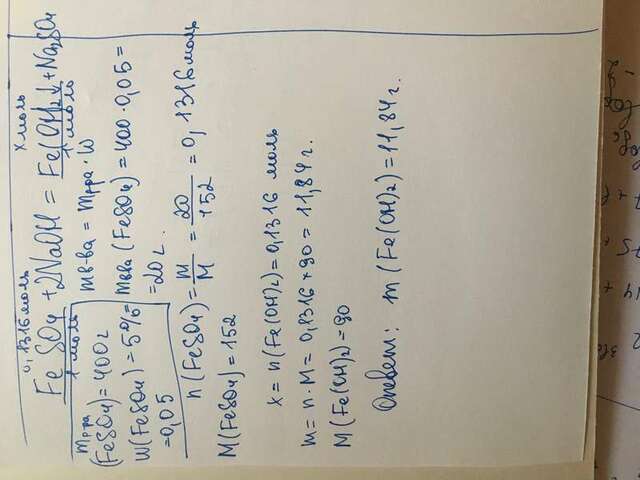 0,1316 моль х моль
FeSO4 + 2NaOH = Fe(OH)2↓ + Na2SO4
1 моль 1 моль
mр-ра
(FeSO4) = 400г
W(FeSO4) = 5% =
= 0,05
mв-ва = mр-ра · W
mв-ва (FeSO4) = 400 · 0,05 =
= 20г.
n(FeSO4) = m/M = 20/152 = 0,1316 моль
M(FeSO4) = 152
x = n(Fe(OH)2) = 0,1316 моль
m = n · M = 0,1316 * 90 = 11,84 г.
M(Fe(OH)2) = 90
Ответ: m (Fe(OH)2) = 11,84 г.